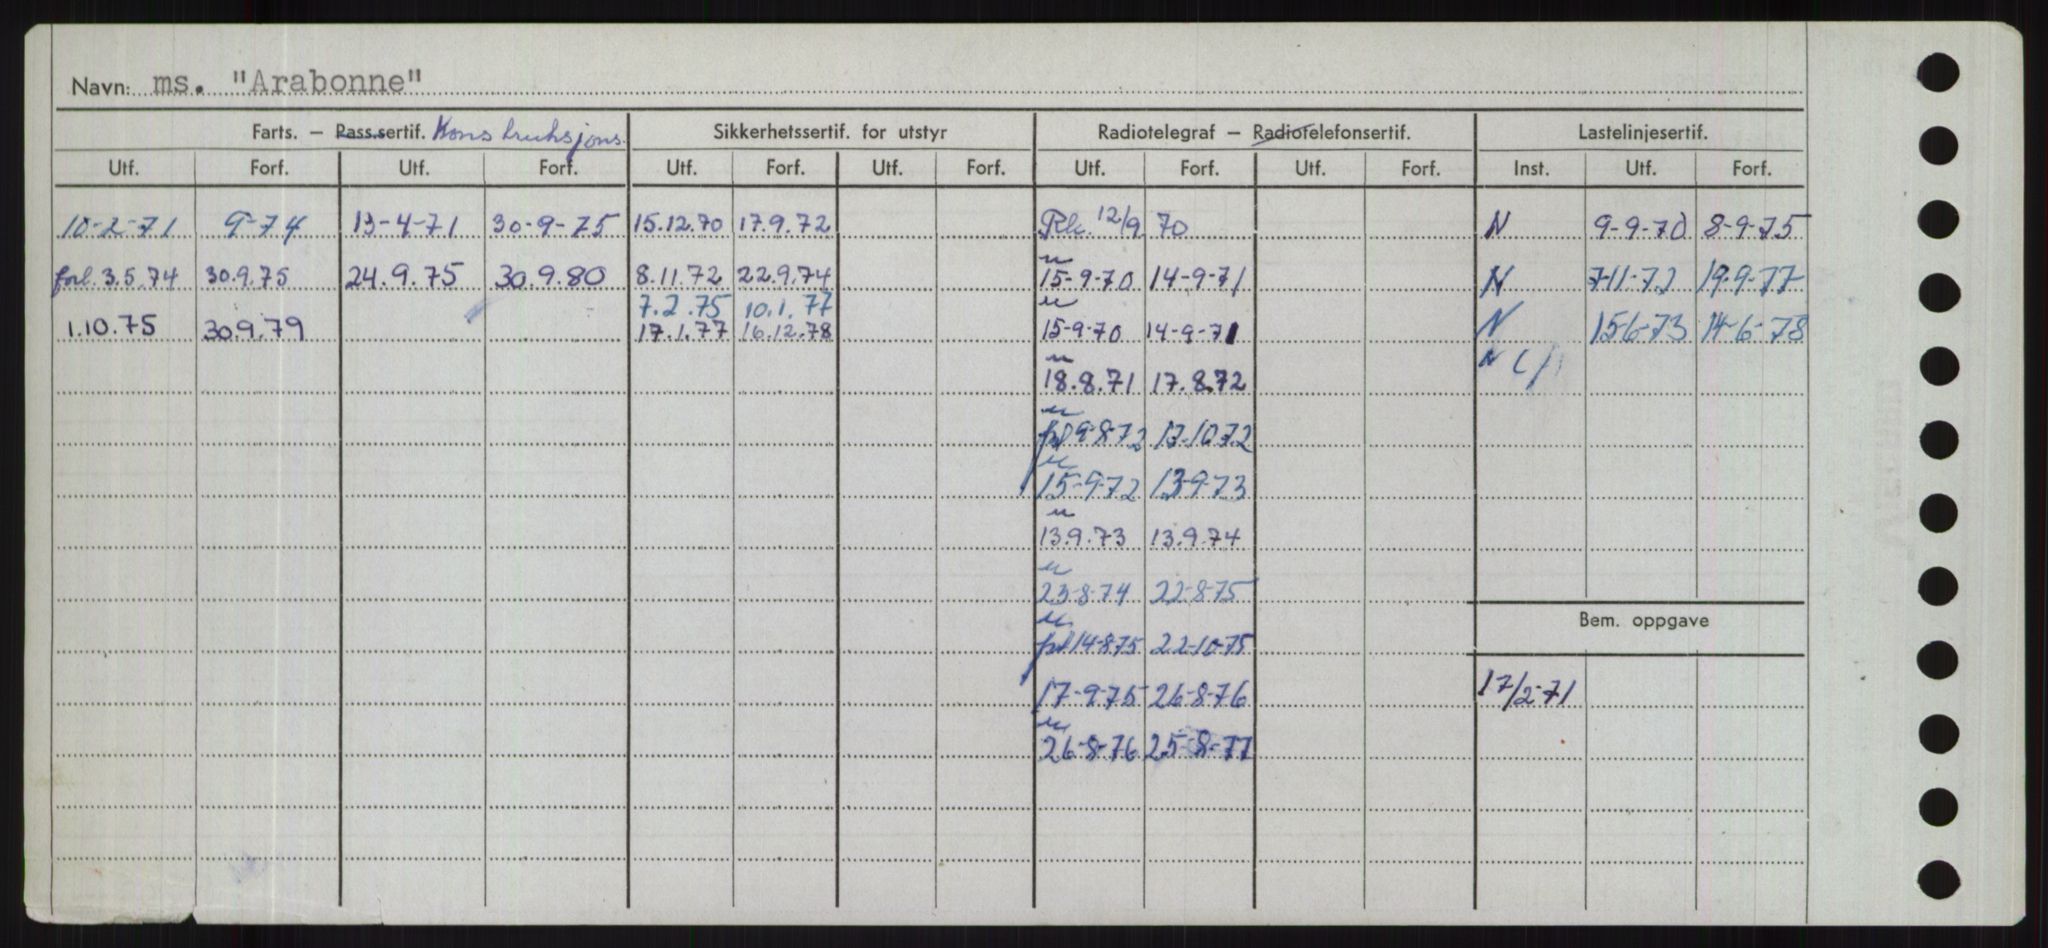 Navn: ms. "Arabonne"
Farts. – Pass.sertif. Konstruksjons. Sikkerhetssertif. for utstyr Radiotelegraf – Radiotelefonsertif. Lastelinjesertif.
Utf. Forf. Utf. Forf. Utf. Forf. Utf. Forf. Utf. Forf. Utf. Forf. Inst. Utf. Forf.
10-2-71 9-74 13-4-71 30-9-75 15.12.70 17.9.72 12/9 70 N 9-9-70 8-9-75
forl. 3.5.74 30.9.75 24.9.75 30.9.80 8.11.72 22.9.74 15-9-70 14-9-71 N 7-11-72 19-9-77
7.2.75 10.1.77
1.10.75 30.9.79 17.1.77 16.12.78 15-9-70 14-9-71 N 15-6-73 14-6-78
N
18.8.71 17.8.72
9-8-72 17-10-72
15-9-72 13-9-73
13.9.73 13.9.74
23-8-74 22-8-75
Bem. oppgave
14-8-75 22-10-75
17-9-75 26-8-76 17/2-71
26-8-76 25-8-77